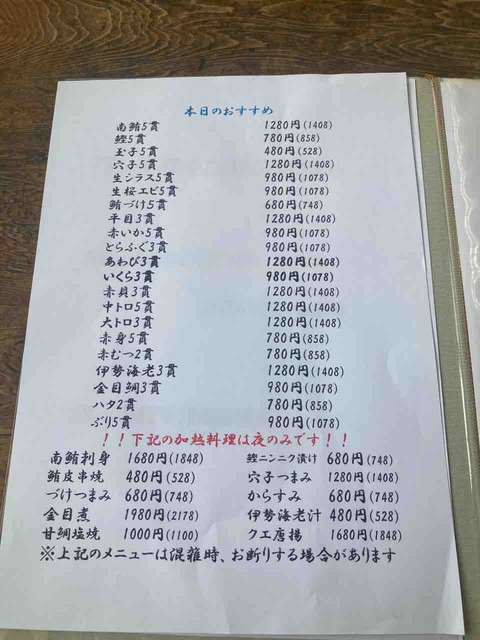 本日のおすすめ
南鮪5貫 1280円(1408)
鰹5貫 780円(858)
玉子5貫 480円(528)
穴子5貫 1280円(1408)
生シラス5貫 980円(1078)
生桜エビ5貫 980円(1078)
鮪づけ5貫 680円(748)
平目3貫 1280円(1408)
赤いか5貫 980円(1078)
とらふぐ3貫 980円(1078)
あわび3貫 1280円(1408)
いくら3貫 980円(1078)
赤貝3貫 1280円(1408)
中トロ5貫 1280円(1408)
大トロ3貫 1280円(1408)
赤身5貫 780円(858)
赤むつ2貫 780円(858)
伊勢海老3貫 1280円(1408)
金目鯛3貫 980円(1078)
ハタ2貫 780円(858)
ぶり5貫 980円(1078)
!!下記の加熱料理は夜のみです!!
南鮪刺身 1680円(1848) 鰹ニンニク漬け 680円(748)
鮪皮串焼 480円(528) 穴子つまみ 1280円(1408)
づけつまみ 680円(748) からすみ 680円(748)
金目煮 1980円(2178) 伊勢海老汁 480円(528)
甘鯛塩焼 1000円(1100) クエ唐揚 1680円(1848)
※上記のメニューは混雑時、お断りする場合があります